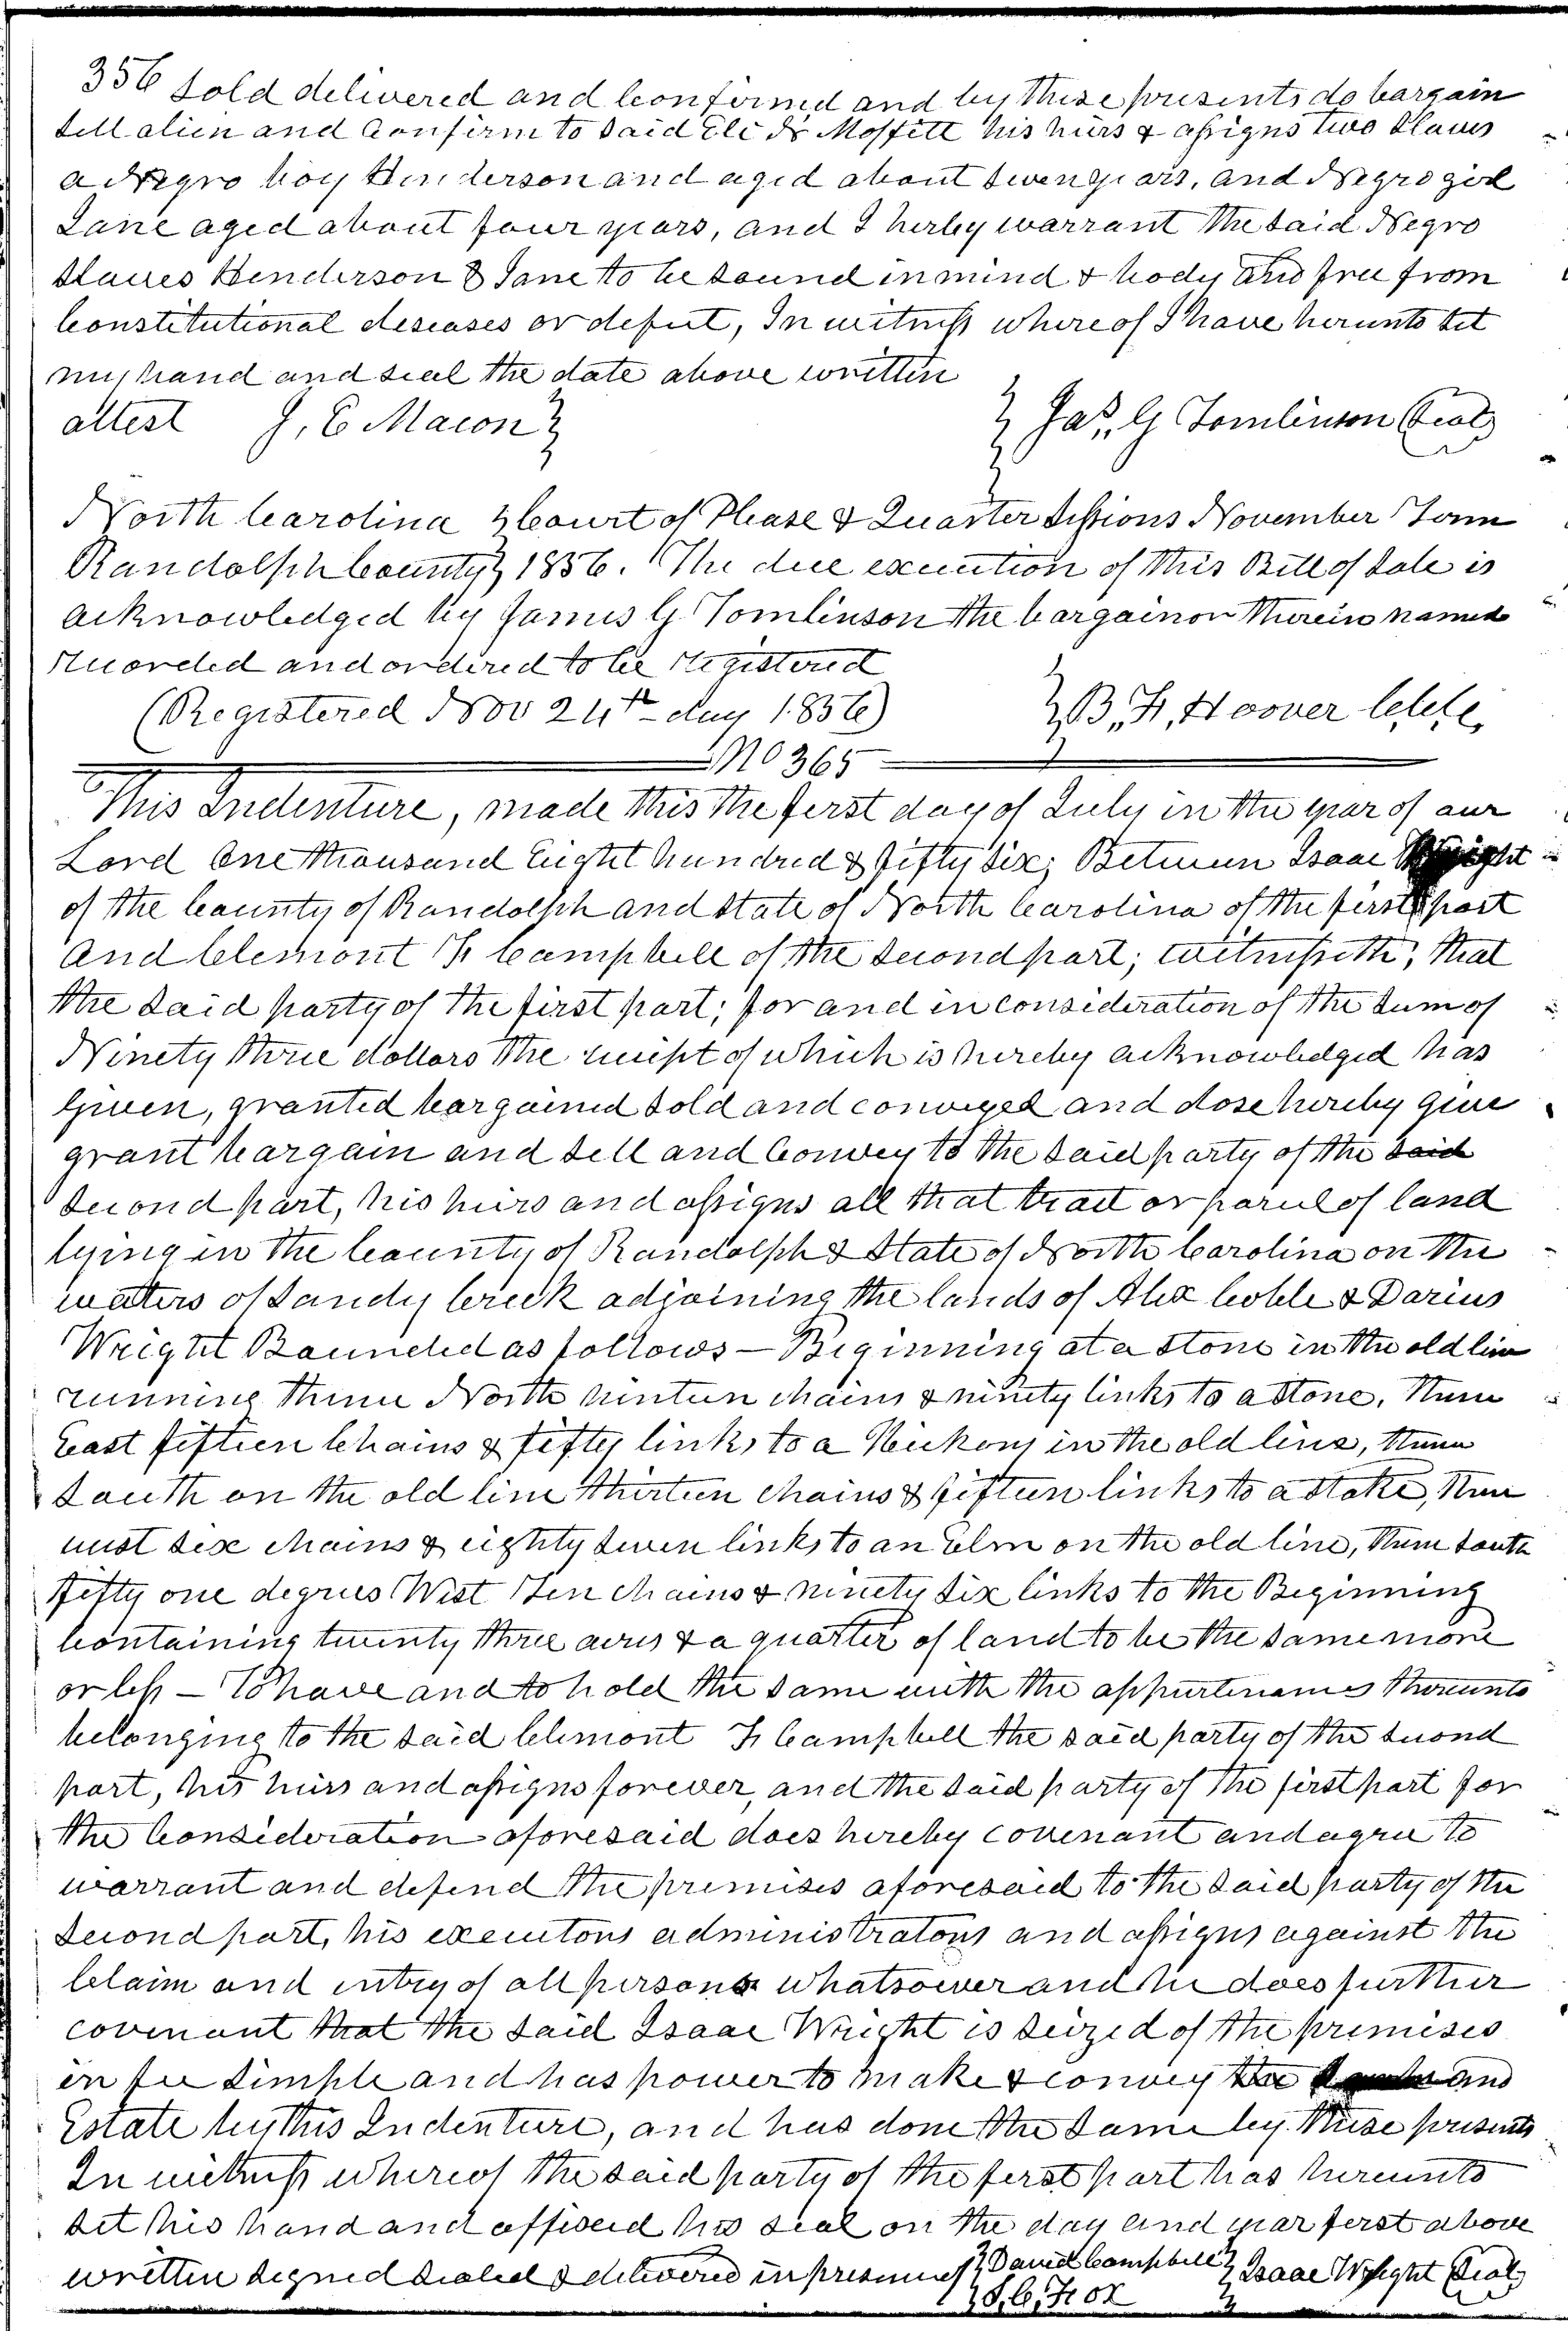 356 Sold delivered and Confirmed and by these presents do bargain
Sell alien and Confirm to Said Eli S. Moffitt his heirs & assigns two Slaves
a Negro boy Henderson and aged about Seven years, and Negro girl
Jane aged about four years, and I herby warrant the Said Negro
Slaves Henderson & Jane to be Sound in mind & body and free from
Constitutional deseases or defect, In witness whereof I have hereunto Set
my hand and seal the date above written
attest J, E Macon } } Jas,, G Tomlinson Seal
North Carolina } Court of Please & Quarter Sessions November Term
Randolph County } 1856. The due execution of this Bill of Sale is
acknowledged by James G Tomlinson the bargainor therein named
recorded and ordered to be registered
(Registered Nov 24th day 1856) } B,, F, Hoover C,C,C,
No 365
This Indenture, made this the ferst day of July in the year of our
Lord One thousand Eight hundred & fifty Six; Between Isaac Wright
of the County of Randolph and State of North Carolina of the first part
And Clemont F Campbell of the Second part; witnesseth, that
the Said party of the first part; for and in consideration of the Sum of
Ninety three dollars the receipt of which is hereby acknowledged has
Given, granted bargained Sold and conveyed and dose hereby give
grant bargain and Sell and Convey to the Said party of the said
Second part, his heirs and assigns all that tract or parcel of land
lying in the County of Randolph & State of North Carolina on the
waters of Sandy Creek adjoining the lands of Alex Coble & Darius
Wright Bounded as follows — Beginning at a Stone in the old line
running thence North ninteen chains & ninety links to a Stone, thence
East fiftien Chains & fifty links to a Hickory in the old line, thence
South on the old line thirteen chains & fifteen links to a Stake, then
west Six chains & eighty Seven links to an Elm on the old line, then South
fifty one degrees West Ten chains & ninety Six links to the Beginning
Containing twenty three acres & a quarter of land to be the same more
or less — To have and to hold the Same with the appurtenances thereunto
belonging to the said Clemont F Campbell the said party of the second
part, his heirs and assigns forever, and the Said party of the first part for
the Consideration aforesaid does hereby covenant and agree to
warrant and defend the premises aforesaid to the Said party of the
Second part, his executors administrators and assigns against the
Claim and entry of all persons whatsoever and he does further
covenant that the Said Isaac Wright is Seized of the premises
in fee Simple and has power to make & convey the and
Estate by this Indenture, and has done the Same by these presents
In witness whereof the said party of the ferst part has hereunto
Set his hand and affixed his seal on the day and year ferst above
written Signed Sealed & delivered in presence of } David Campbell } Isaac Wright Seal
} S, C, Fox }